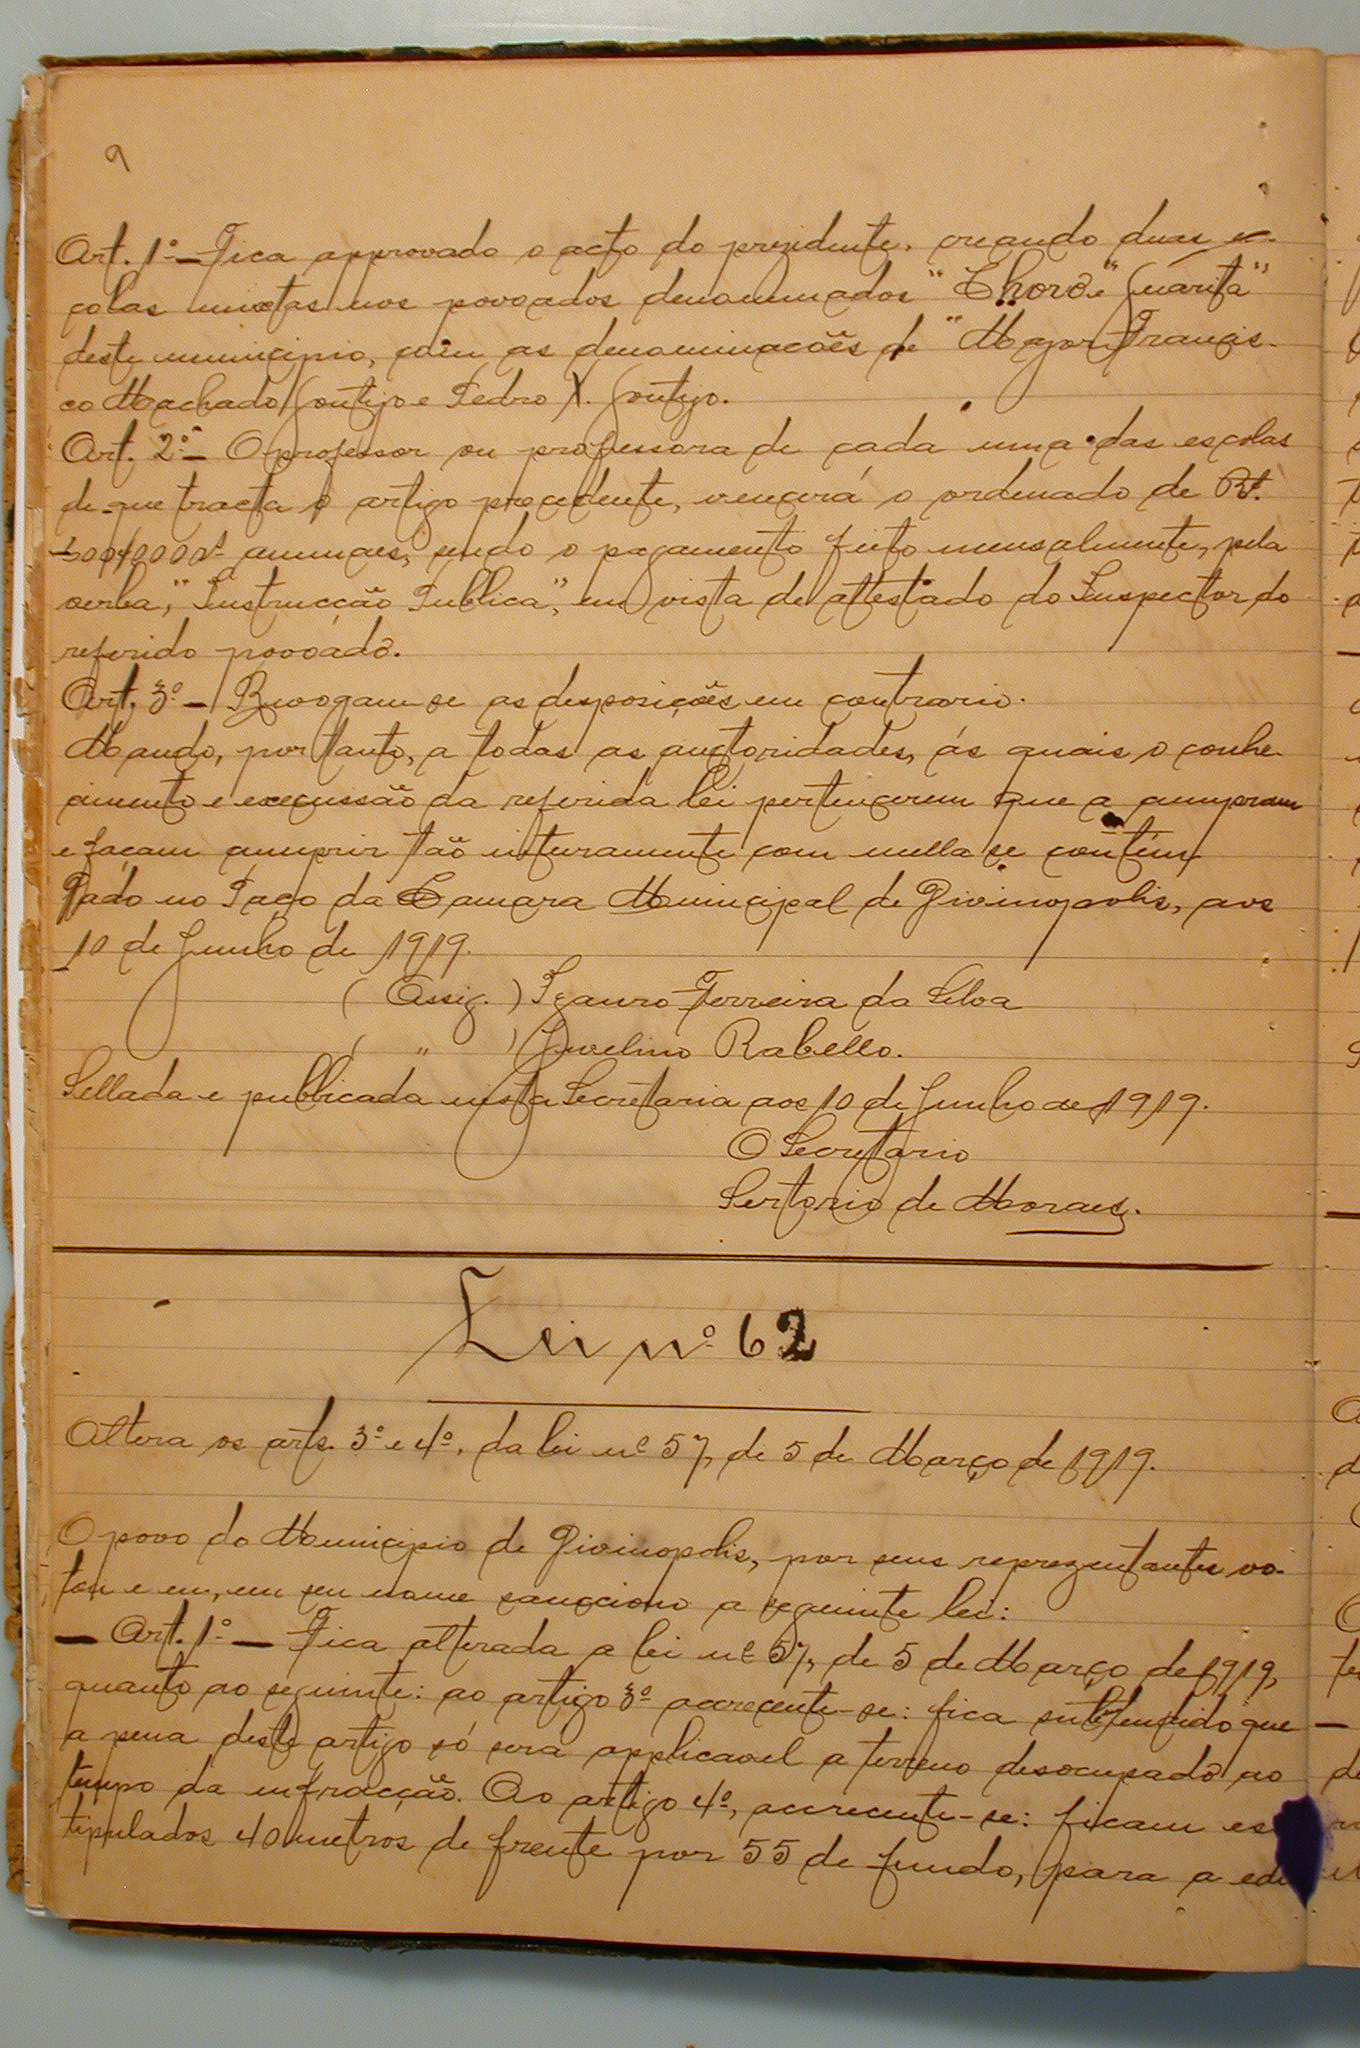 9
Art. 1º — Fica approvado o acto do prezidente, creando duas es-
colas mixtas nos povoados denominados "Choro" e "Guarita"
deste municipio, com as denominacões de "Major Francis-
co Machado Gontijo e Pedro X. Gontijo.
Art. 2º — O professor ou professora de cada uma das escolas
de que tracta o artigo precedente, vencerá o ordenado de Rs.
annuaes, sendo o pagamento feito mensalmente, pela
verba, "Instrucção Publica", em vista de attestado do Inspector do
referido povoádo.
Art. 3º — Revogam-se as desposições em contrario.
Mando, por tanto, a todas as auctoridades, ás quais o conhe-
cimento e execussão da referida lei pertencerem que a cumpram
e façam cumprir tão interamente com nella se contém
Dado no Paço da Camara Municipal de Divinopolis, aos
10 de Junho de 1919.
(Assig.) Ferreira da Silva
( " ) Juvelino Rabello.
Sellada e publicada nesta Secretaria aos 10 de Junho de 1919.
O Secretario
Sertorio de Moraes.
Lei nº 62
Altera os arts. 3º e 4º, da lei nº 57, de 5 de Março de 1919.
O povo do Municipio de Divinopolis, por seus reprezentantes vo-
tou e eu, em seu nome sancciono a seguinte lei:
— Art. 1º — Fica alterada a lei nº 57, de 5 de Março de 1919,
quanto ao seguinte: ao artigo 3º accrecente-se: fica subtendido que
a pena deste artigo só sera applicavel a terreno desocupado ao
tempo da infracção. Ao artigo 4º, accrecente-se: ficam es-
tipulados 40 metros de frente por 55 de fundo, para a edi